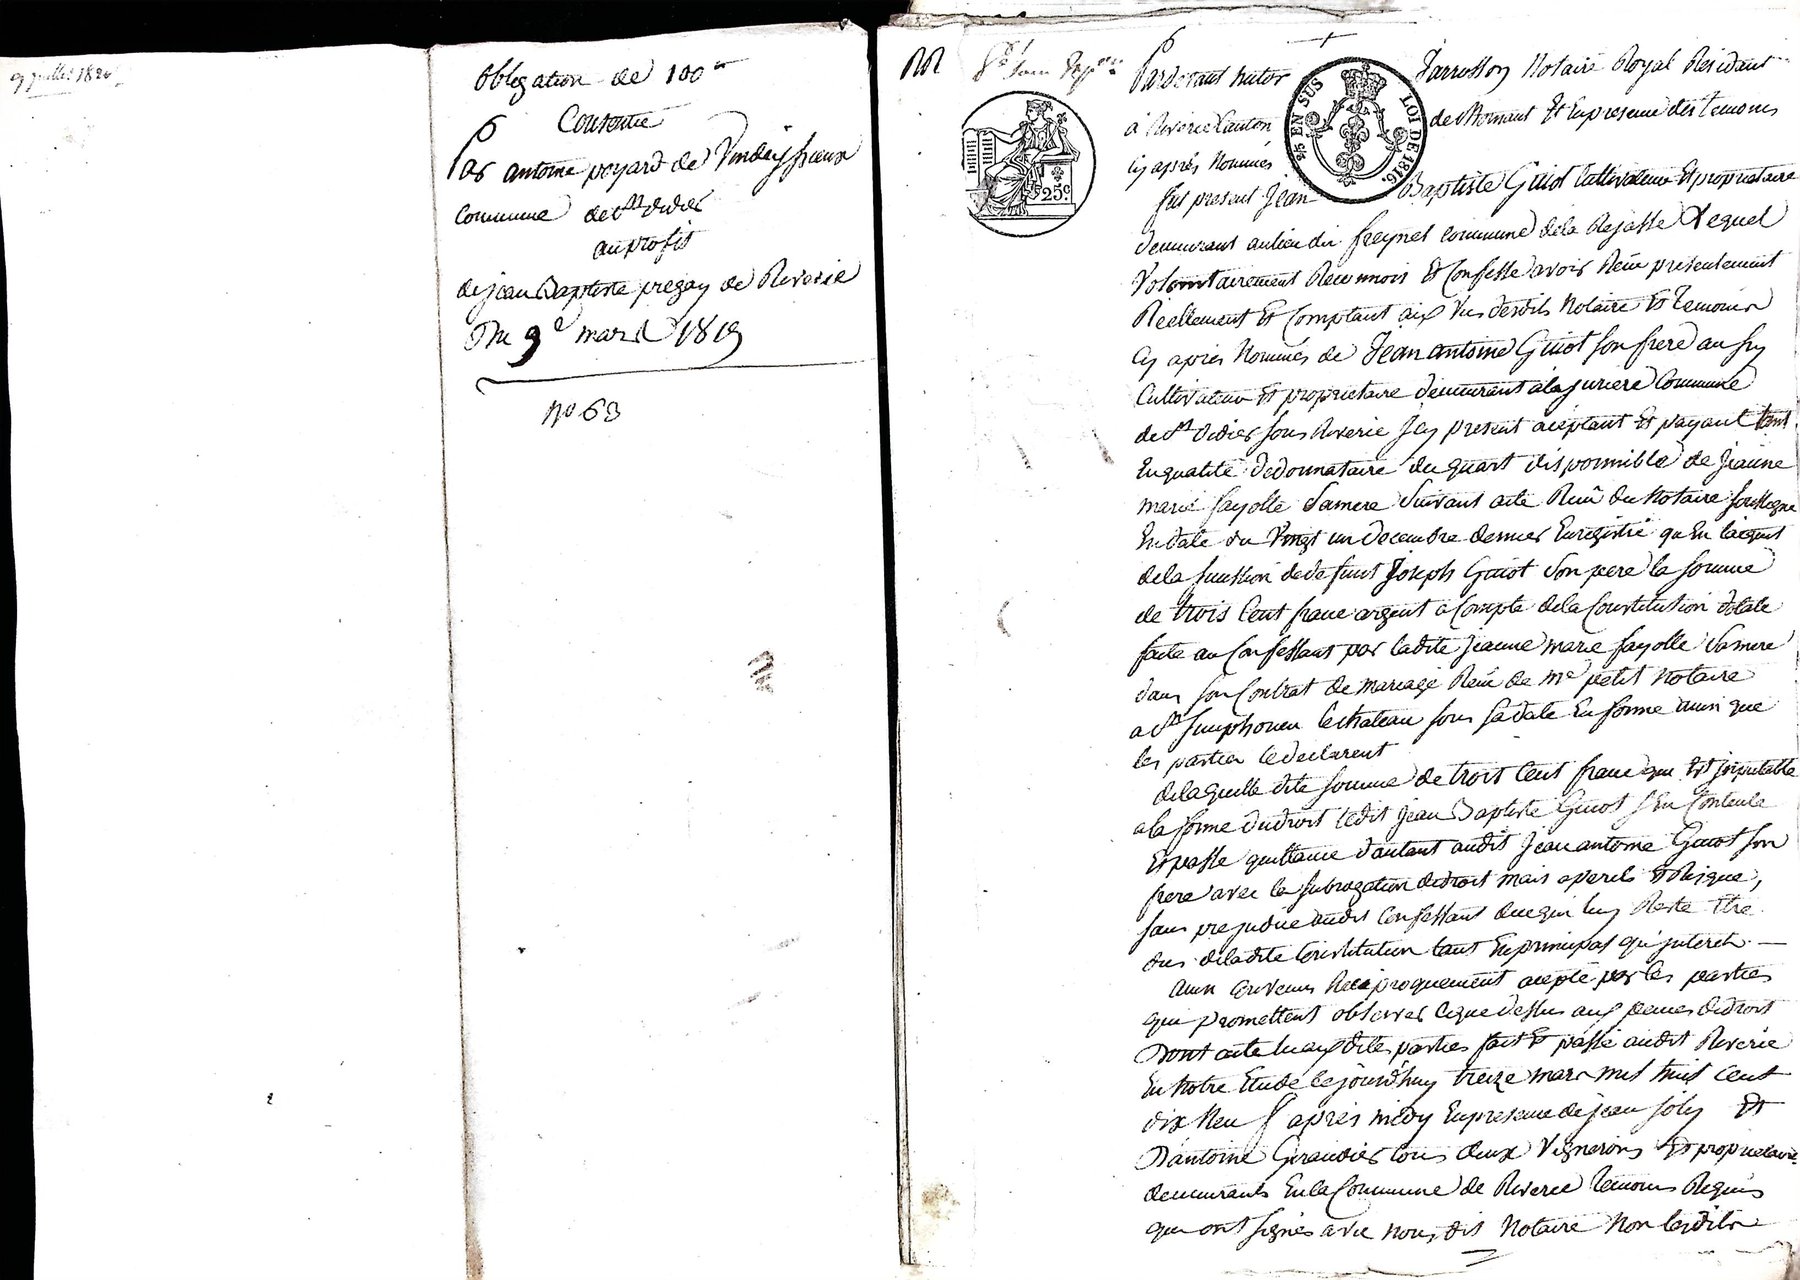 9 juillet 1820
Obligation de 100
Consentie
Par antoine poyard de Vindeissieux
Commune de St didier
au profit
de jean Baptiste pregay de Riverie
Du 9e mars 1819
no 63
25c
25 EN SUS
LOI DE 1816.
Pardevant notaire Jarrosson Notaire Royal Résidant
a Riverie Canton de Mornant Et En presence des temoins
Cy après Nommés
fut present Jean Baptiste Guiot Cultivateur Et proprietaire
demeurant au lieu du freynet commune de la Rajasse Lequel
Volontairement Reconnois Et Confesse avoir Reçu presentement
Réellement Et Comptant aux Vus desdits Notaire Et Temoins
Cy après Nommés de Jean antoine Guiot son frere au sy
Cultivateur Et proprietaire demeurant à la jurière Commune
de St didier sous Riverie Icy present aceptant Et payant tant
En qualité de donnataire du quart disponnible de Jeanne
marie fayolle sa mere Suivant acte Reçu du Notaire soussigné
En date du Vingt un Decembre dernier Enregistré qu'En l'acquit
de la sucession de defunt Joseph Guiot son pere la somme
de trois Cent franc argent a Compte de la Constitution dotale
faite au Confessant par ladite Jeanne marie fayolle sa mere
dans son Contrat de mariage Reçu de me petit Notaire
a St Simphorien le chateau sous sa date En forme ainsi que
les parties le declarent
de laquelle dite somme de trois Cent franc qui Est imputable
a la forme du droit ledit Jean Baptiste Guiot s'En Contente
Et passe quittance d'autant audit Jean antoine Guiot son
frere avec la subrogation de droit mais a perils Et Risque,
sans prejudice audit Confessant de ce qui luy Reste Etre
dus de ladite Constitution tant En principal qu'interets
ainsi Convenu Reciproquement acepté par les parties
qui promettent observer ce que dessus aux peines de droit
Dont acte lu aux dites parties fait Et passé audit Riverie
En Notre Etude Cejourd'huy treize mars mil huit Cent
dix Neuf après midy En presence de jean joly Et
D'antoine Giraudier tous deux Vignerons Et proprietaires
demeurants En la Commune de Riverie Temoins Requis
qui ont signés avec nous dit Notaire Non lesdits